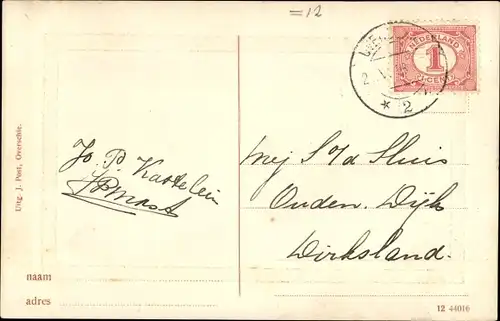 =12
NEDERLAND
1
CENT
2
2
Uitg. J. Post, Overschie.
Jo. P. Kastelein
Mej S v/d Sluis
Ouden. Dijk
Dirksland.
naam
adres
12 44016